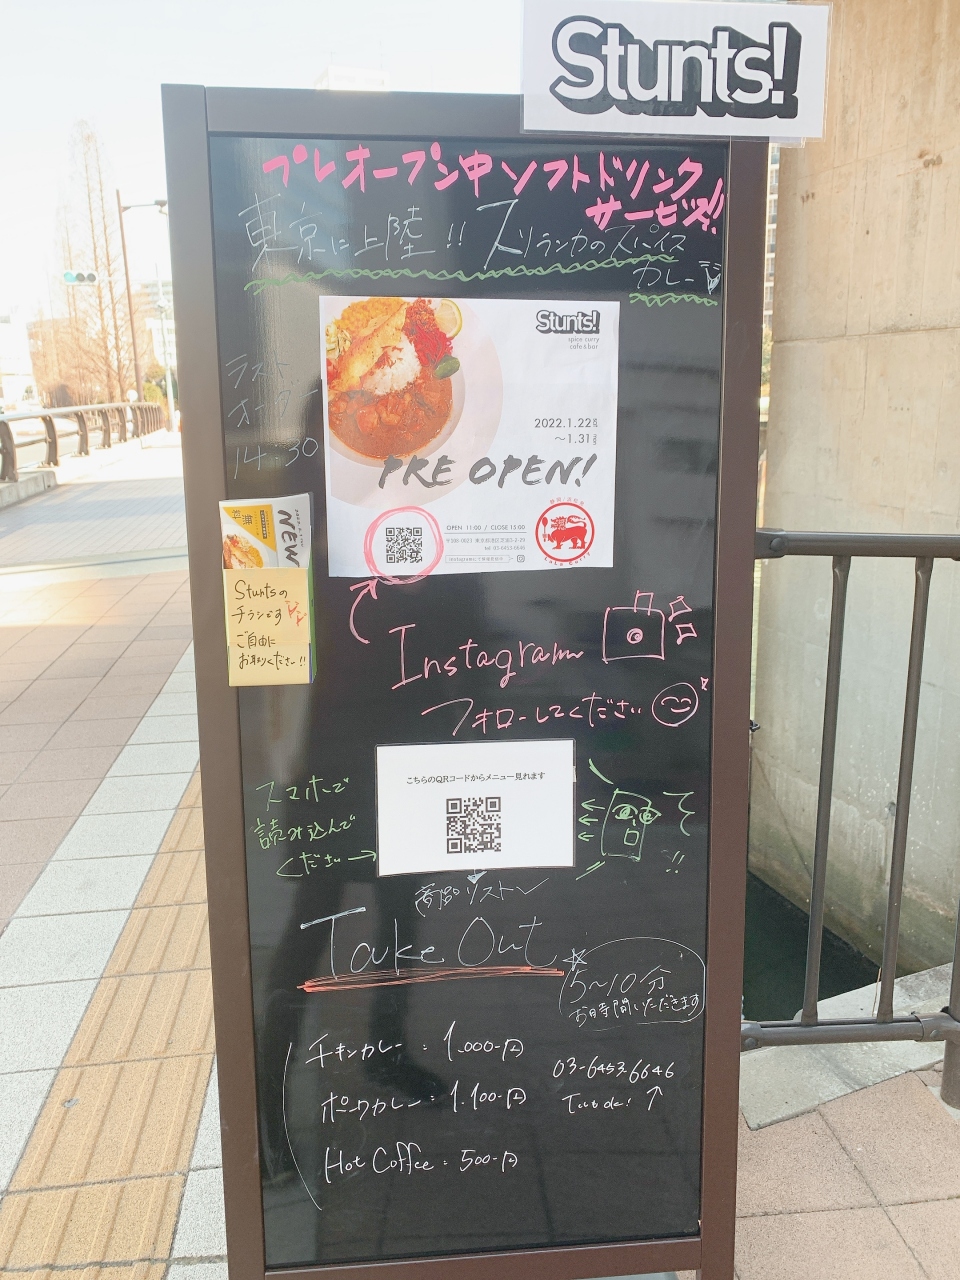 Stunts!
プレオープン中 ソフトドリンク
サービス!!
東京に上陸!! スリランカのスパイス
カレー
ラスト
オーダー
14:30
Stunts!
spice curry
cafe & bar
2022.1.22
〜1.31
PRE OPEN!
OPEN 11:00 / CLOSE 15:00
tel 03-6453-6646
無料
NEW
Stuntsの
チラシです
ご自由に
お取りください!!
Instagram
フォローしてください
こちらのQRコードからメニュー見れます
スマホで
読み込んで
ください→
Take Out
5〜10分
お時間いただきます
チキンカレー：1.000-円
ポークカレー：1.100-円
Hot Coffee：500-円
03-6453-6646